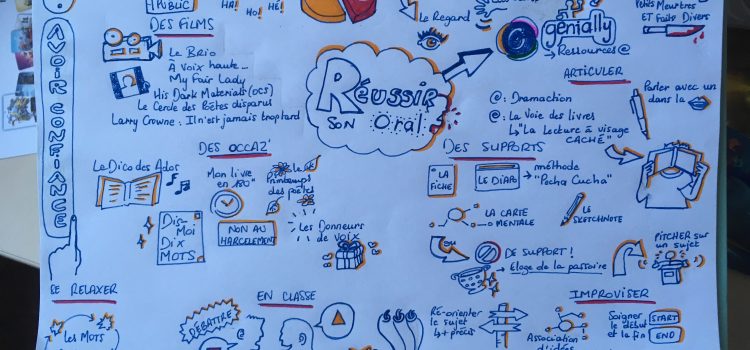 PUBLIC
HA!
HO!
HÉ!
DES FILMS
Le Brio
À Voix haute...
My Fair Lady
His Dark Materials (OCS)
Le Cercle des Poètes disparus
Larry Crowne : Il n'est jamais trop tard
AVOIR CONFIANCE
RÉUSSIR
SON ORAL
Le Regard
genially
Ressources@
Petits Meurtres
ET Faits Divers
ARTICULER
@: Dramaction
@: La Voie des livres
"La Lecture à visage
CACHÉ"
Parler avec un
dans la
DES OCCAZ'
Le Dico des Ados
Mon livre
en 180"
Le
Printemps
des poètes
Dis-
Moi
Dix
MOTS
NON AU
HARCELEMENT
Les Donneurs
de voix
DES SUPPORTS
LA
FICHE
LE DIAPO
méthode
"Pecha Cucha"
LA CARTE
MENTALE
LE
SKETCHNOTE
OU
DE SUPPORT !
Eloge de la passoire
PITCHER sur
un sujet
SE RELAXER
Les Mots
EN CLASSE
DÉBATTRE
Ré-orienter
le sujet
++ précis
IMPROVISER
Association
d'idées
Soigner
le début
et la fin
START
END